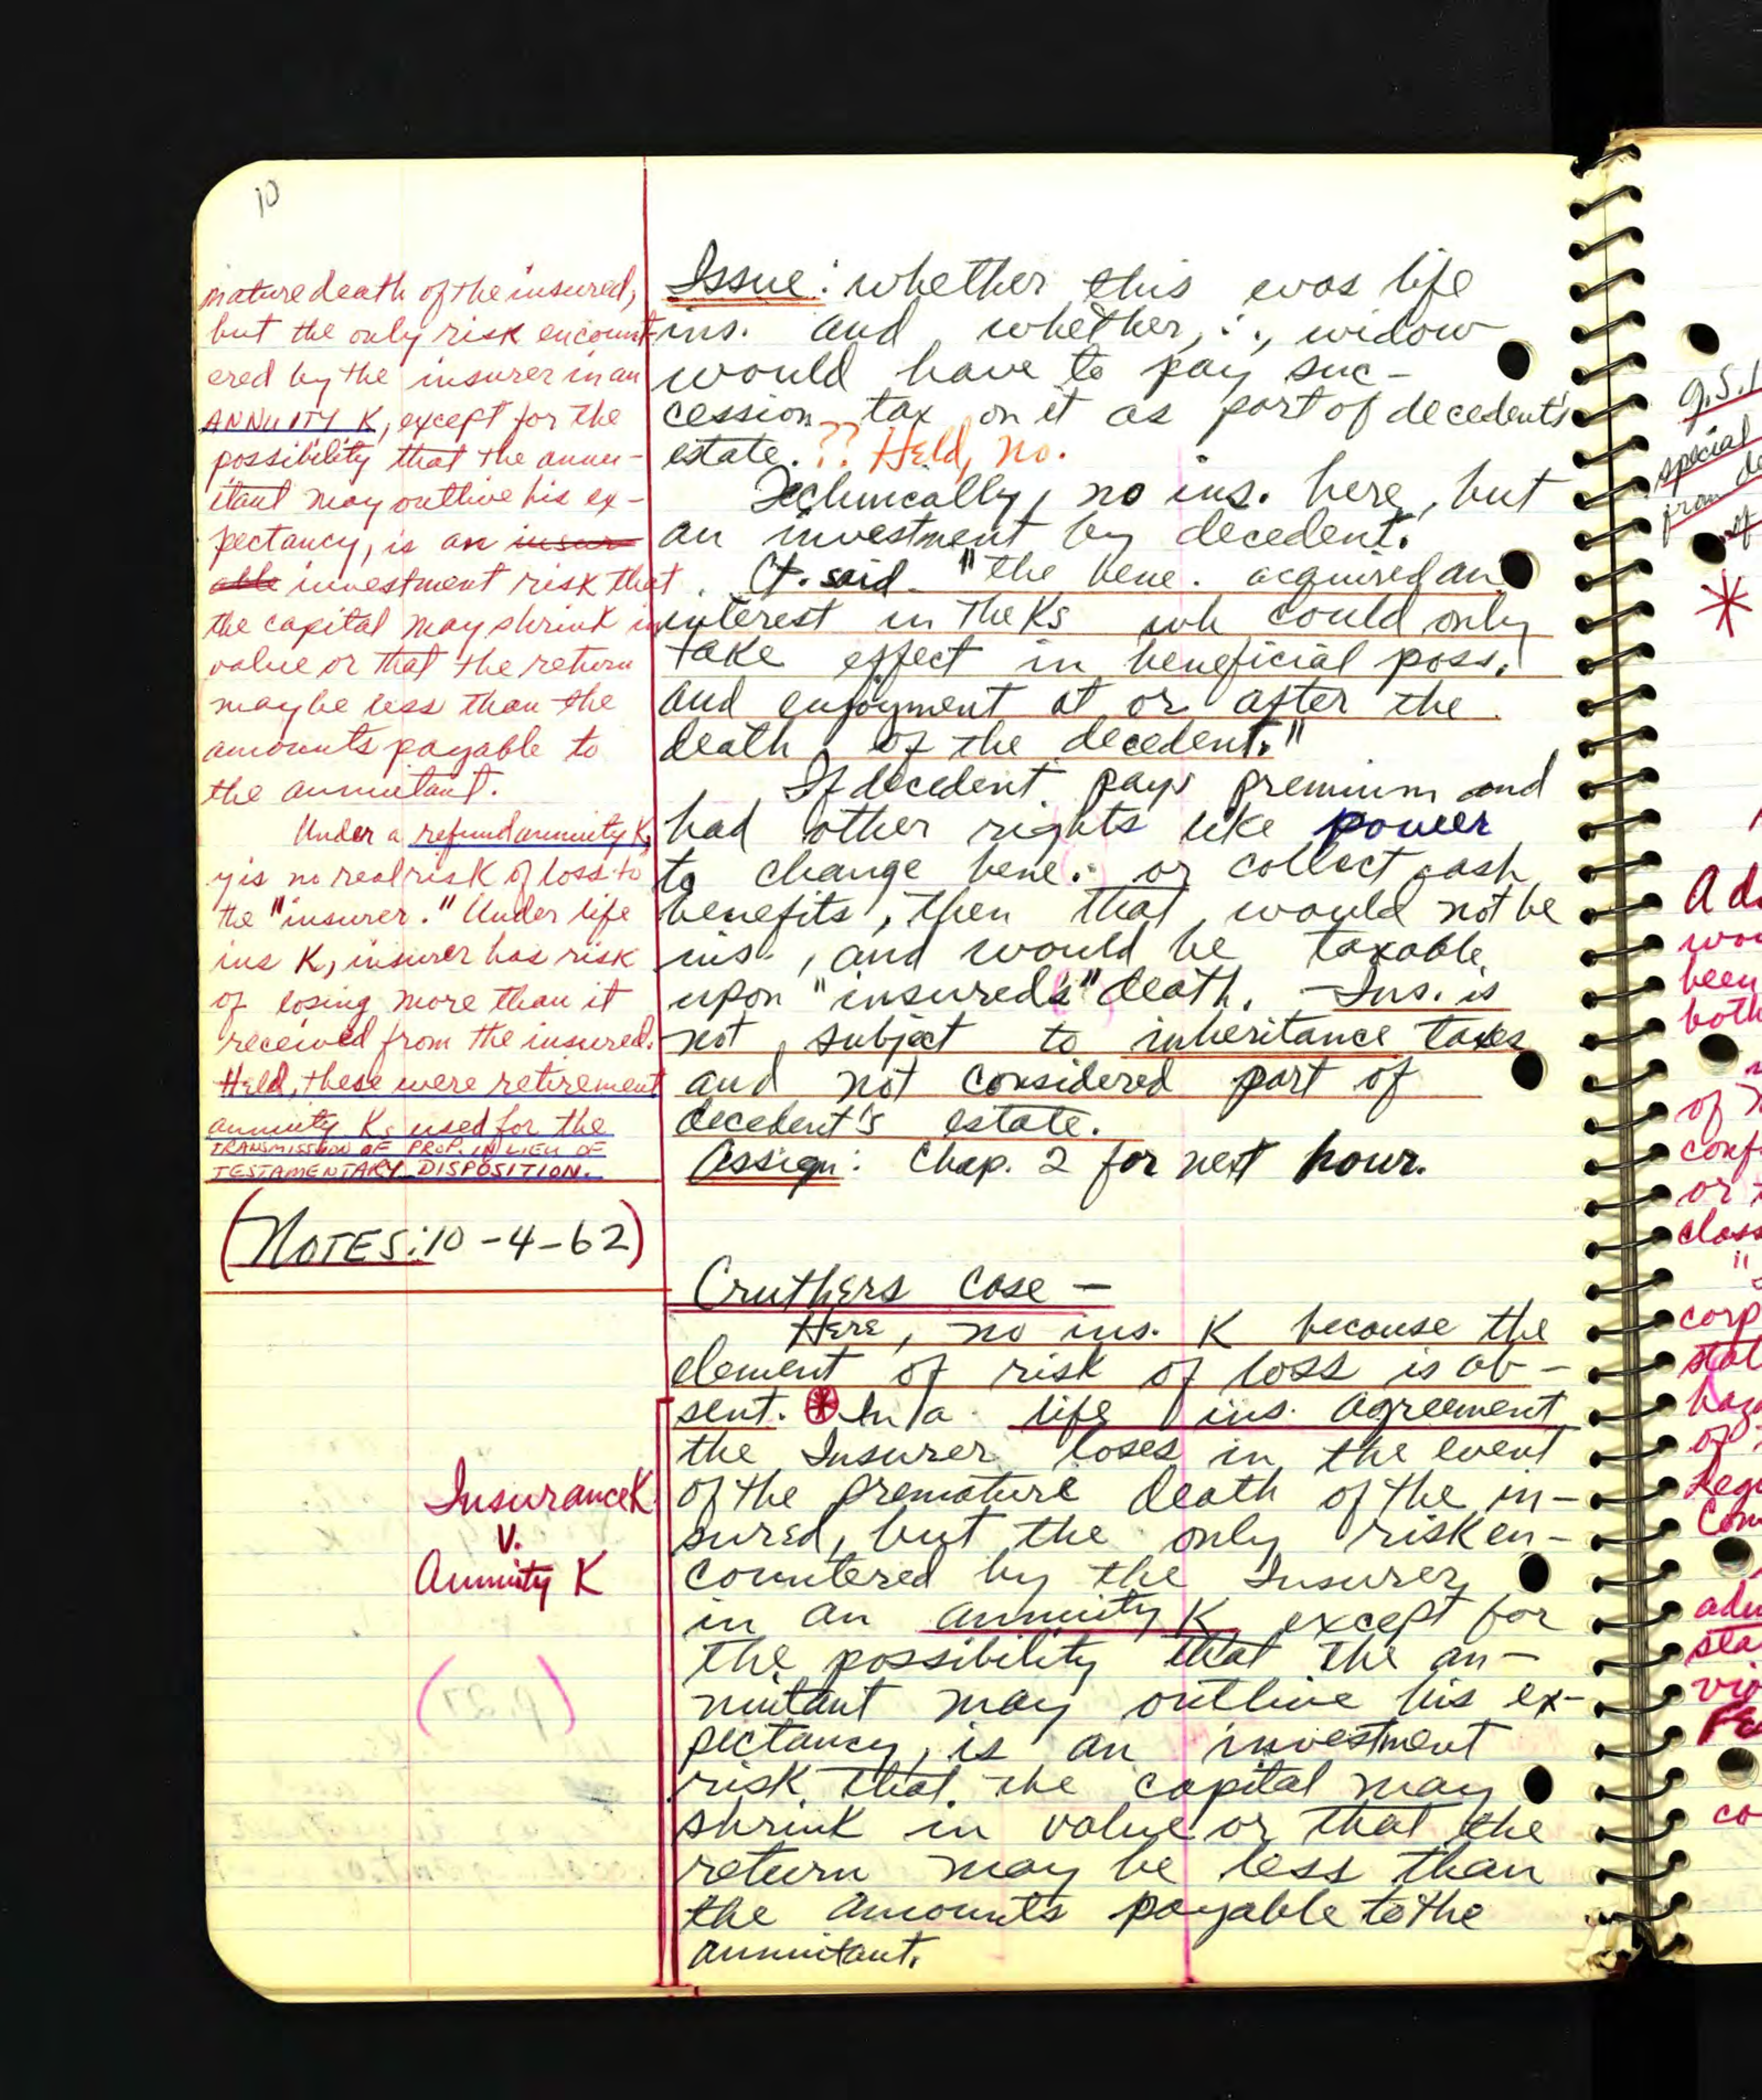 10
mature death of the insured,
but the only risk encount-
ered by the insurer in an
ANNUITY K, except for the
possibility that the annu-
itant may outlive his ex-
pectancy, is an insur
able investment risk that
the capital may shrink in
value or that the return
may be less than the
amounts payable to
the annuitant.
Under a refund annuity K,
y is no real risk of loss to
the "insurer." Under life
ins K, insurer has risk
of losing more than it
received from the insured.
Held, these were retirement
annuity Ks used for the
TRANSMISSION OF PROP. IN LIEU OF
TESTAMENTARY DISPOSITION.
(NOTES: 10-4-62)
Issue: whether this was life
ins. and whether, ∴, widow
would have to pay suc-
cession tax on it as part of decedent's
estate. ?? Held, no.
Technically, no ins. here, but
an investment by decedent.
Ct. said "the bene. acquired an
interest in the Ks wh could only
take effect in beneficial poss.
and enjoyment at or after the
death of the decedent."
If decedent pays premium and
had other rights like power
to change bene. or collect cash
benefits, then that would not be
ins., and would be taxable
upon "insured's" death. Ins. is
not subject to inheritance taxes
and not considered part of
decedent's estate.
Assign: Chap. 2 for next hour.
Cruthers Case -
Here, no ins. K because the
element of risk of loss is ab-
sent. * In a life ins. agreement
the Insurer loses in the event
of the premature death of the in-
sured, but the only risk en-
countered by the Insurer
in an annuity K except for
the possibility that the an-
nuitant may outlive his ex-
pectancy, is an investment
risk that the capital may
shrink in value or that the
return may be less than
the amounts payable to the
annuitant.
Insurance K
v.
Annuity K
(p.27)
G.S.
special
from
of
*
wou
been
both
of
conf
or
class
corp
stat
haza
of
Regu
Com
adm
sea
vio
co